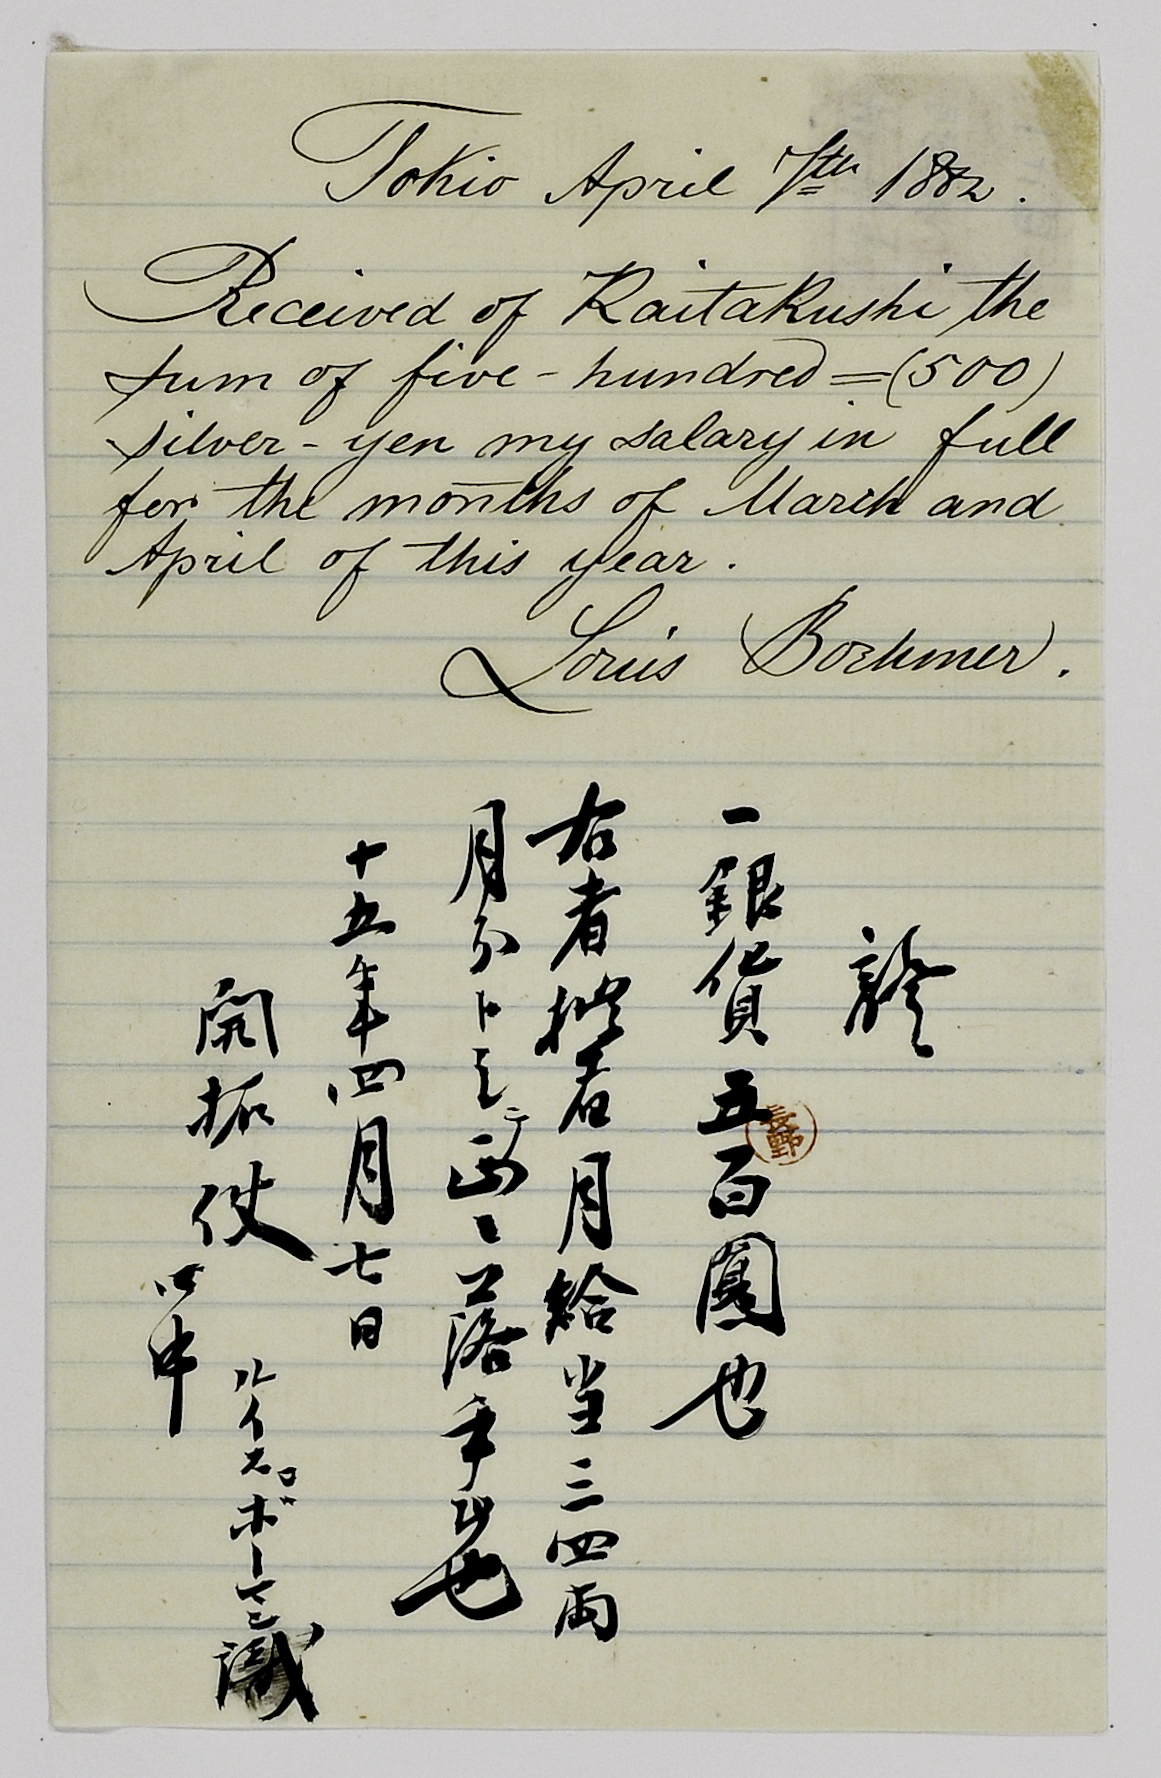 Tokio April 7th 1882.
Received of Kaitakushi the
sum of five-hundred=(500)
silver-yen my salary in full
for the months of March and
April of this year.
Louis Boehmer.
證
一銀貨五百圓也
長野
右者拙者月給当三四両
月分
落手 也
十五年四月七日
開拓使
御中
ルイスボーマ